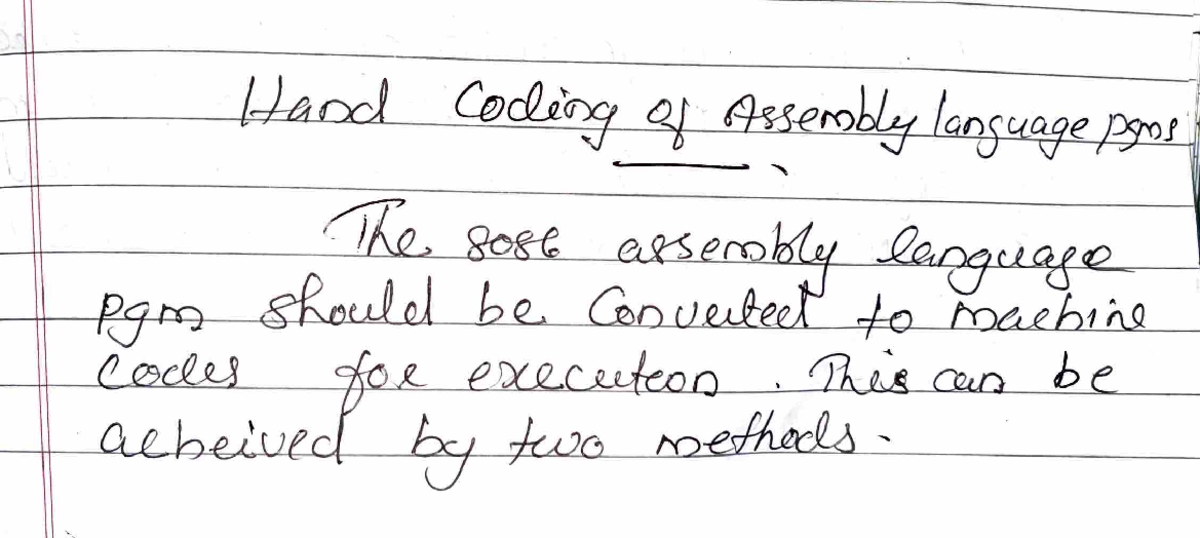 Hand Coding of Assembly language pgms
The 8086 assembly language
pgm should be Converted to machine
Codes for execution. This can be
acheived by two methods.